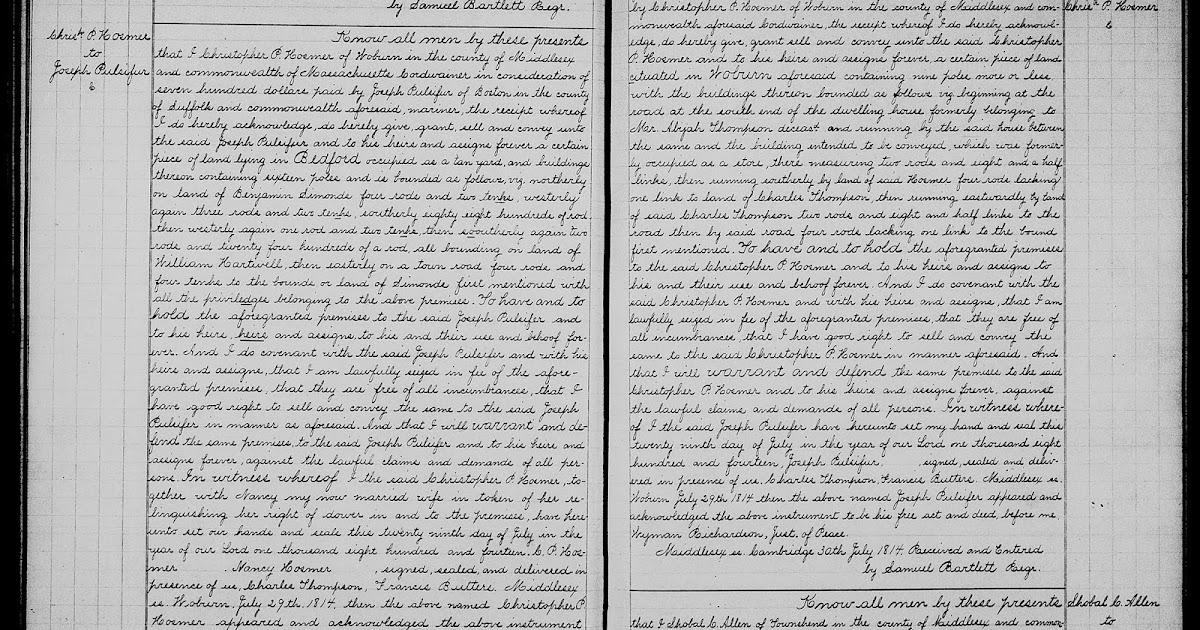 by Samuel Bartlett Regr.
Chrisr. P. Hosmer
to
Joseph Pulsifur
6
Know all men by these presents
that I Christopher P. Hosmer of Woburn in the county of Middlesex
and commonwealth of Massachusetts Cordwainer in consideration of
seven hundred dollars paid by Joseph Pulsifur of Boston in the county
of Suffolk and commonwealth aforesaid, mariner, the receipt whereof
I do hereby acknowledge, do hereby give, grant, sell and convey unto
the said Joseph Pulsifur and to his heirs and assigns forever a certain
piece of land lying in Bedford occupied as a tan yard, and buildings
thereon containing sixteen poles and is bounded as follows, viz, northerly
on land of Benjamin Simonds four rods and two tenths, westerly
again three rods and two tenths, southerly eighty eight hundreds of rod
then westerly again one rod and two tenths, then southerly again two
rods and twenty four hundreds of a rod, all bounding on land of
William Hartwell, then easterly on a town road four rods and
four tenths to the bounds or land of Simonds first mentioned with
all the priviledges belonging to the above premises. To have and to
hold the aforegranted premises to the said Joseph Pulsifer and
to his heirs, heirs and assigns, to his and their use and behoof for-
ever. And I do covenant with the said Joseph Pulsifer and with his
heirs and assigns, that I am lawfully seized in fee of the afore-
granted premises, that they are free of all incumbrances, that I
have good right to sell and convey the same to the said Joseph
Pulsifer in manner as aforesaid. And that I will warrant and de-
fend the same premises, to the said Joseph Pulsifer and to his heirs and
assigns forever, against the lawful claims and demands of all per-
sons. In witness whereof I the said Christopher P. Hosmer, to-
gether with Nancy my now married wife in token of her re-
linquishing her right of dower in and to the premises, have here-
unto set our hands and seals this twenty ninth day of July in the
year of our Lord one thousand eight hundred and fourteen. C. P. Hos-
mer . Nancy Hosmer , signed, sealed, and delivered in
presence of us, Charles Thompson, Francis Butters. Middlesex
ss. Woburn, July 29th. 1814, then the above named Christopher P.
Hosmer appeared and acknowledged the above instrument
by Christopher P. Hosmer of Woburn in the county of Middlesex and com-
monwealth aforesaid Cordwainer, the receipt whereof I do hereby acknowl-
edge, do hereby give, grant sell and convey unto the said Christopher
P. Hosmer and to his heirs and assigns forever, a certain piece of land
cituated in Woburn aforesaid containing nine poles more or less
with the buildings thereon bounded as follows viz beginning at the
road at the south end of the dwelling house formerly belonging to
Mr. Abijah Thompson deceast and running by the said house between
the same and the building intended to be conveyed, which was former-
ly occupied as a store, there measuring two rods and eight and a half
links, then running southerly by land of said Hosmer four rods lacking
one link to land of Charles Thompson, then running eastwardly by land
of said Charles Thompson two rods and eight and half links to the
road then by said road four rods lacking one link to the bound
first mentioned. To have and to hold the aforegranted premises
to the said Christopher P. Hosmer and to his heirs and assigns to
his and their use and behoof forever. And I do covenant with the
said Christopher P. Hosmer and with his heirs and assigns, that I am
lawfully seized in fee of the aforegranted premises, that they are free of
all incumbrances, that I have good right to sell and convey the
same to the said Christopher P. Hosmer in manner aforesaid. And
that I will warrant and defend the same premises to the said
Christopher P. Hosmer and to his heirs and assigns forever, against
the lawful claims and demands of all persons. In witness where-
of I the said Joseph Pulsifer have hereunto set my hand and seal this
twenty ninth day of July in the year of our Lord one thousand eight
hundred and fourteen, Joseph Pulsifur. , signed, sealed and deliv-
ered in presence of us. Charles Thompson, Francis Butters. Middlesex ss.
Woburn July 29th 1814 then the above named Joseph Pulsifer appeared and
acknowledged the above instrument to be his free act and deed, before me
Wyman Richardson, Just. of Peace.
Middlesex ss. Cambridge 30th July 1814. Received and Entered
by Samuel Bartlett Regr.
Know all men by these presents
that I Shobal C. Allen of Townsend in the county of Middlesex and commo-
Chrisr. P. Hosmer
6
Shobal C. Allen
to